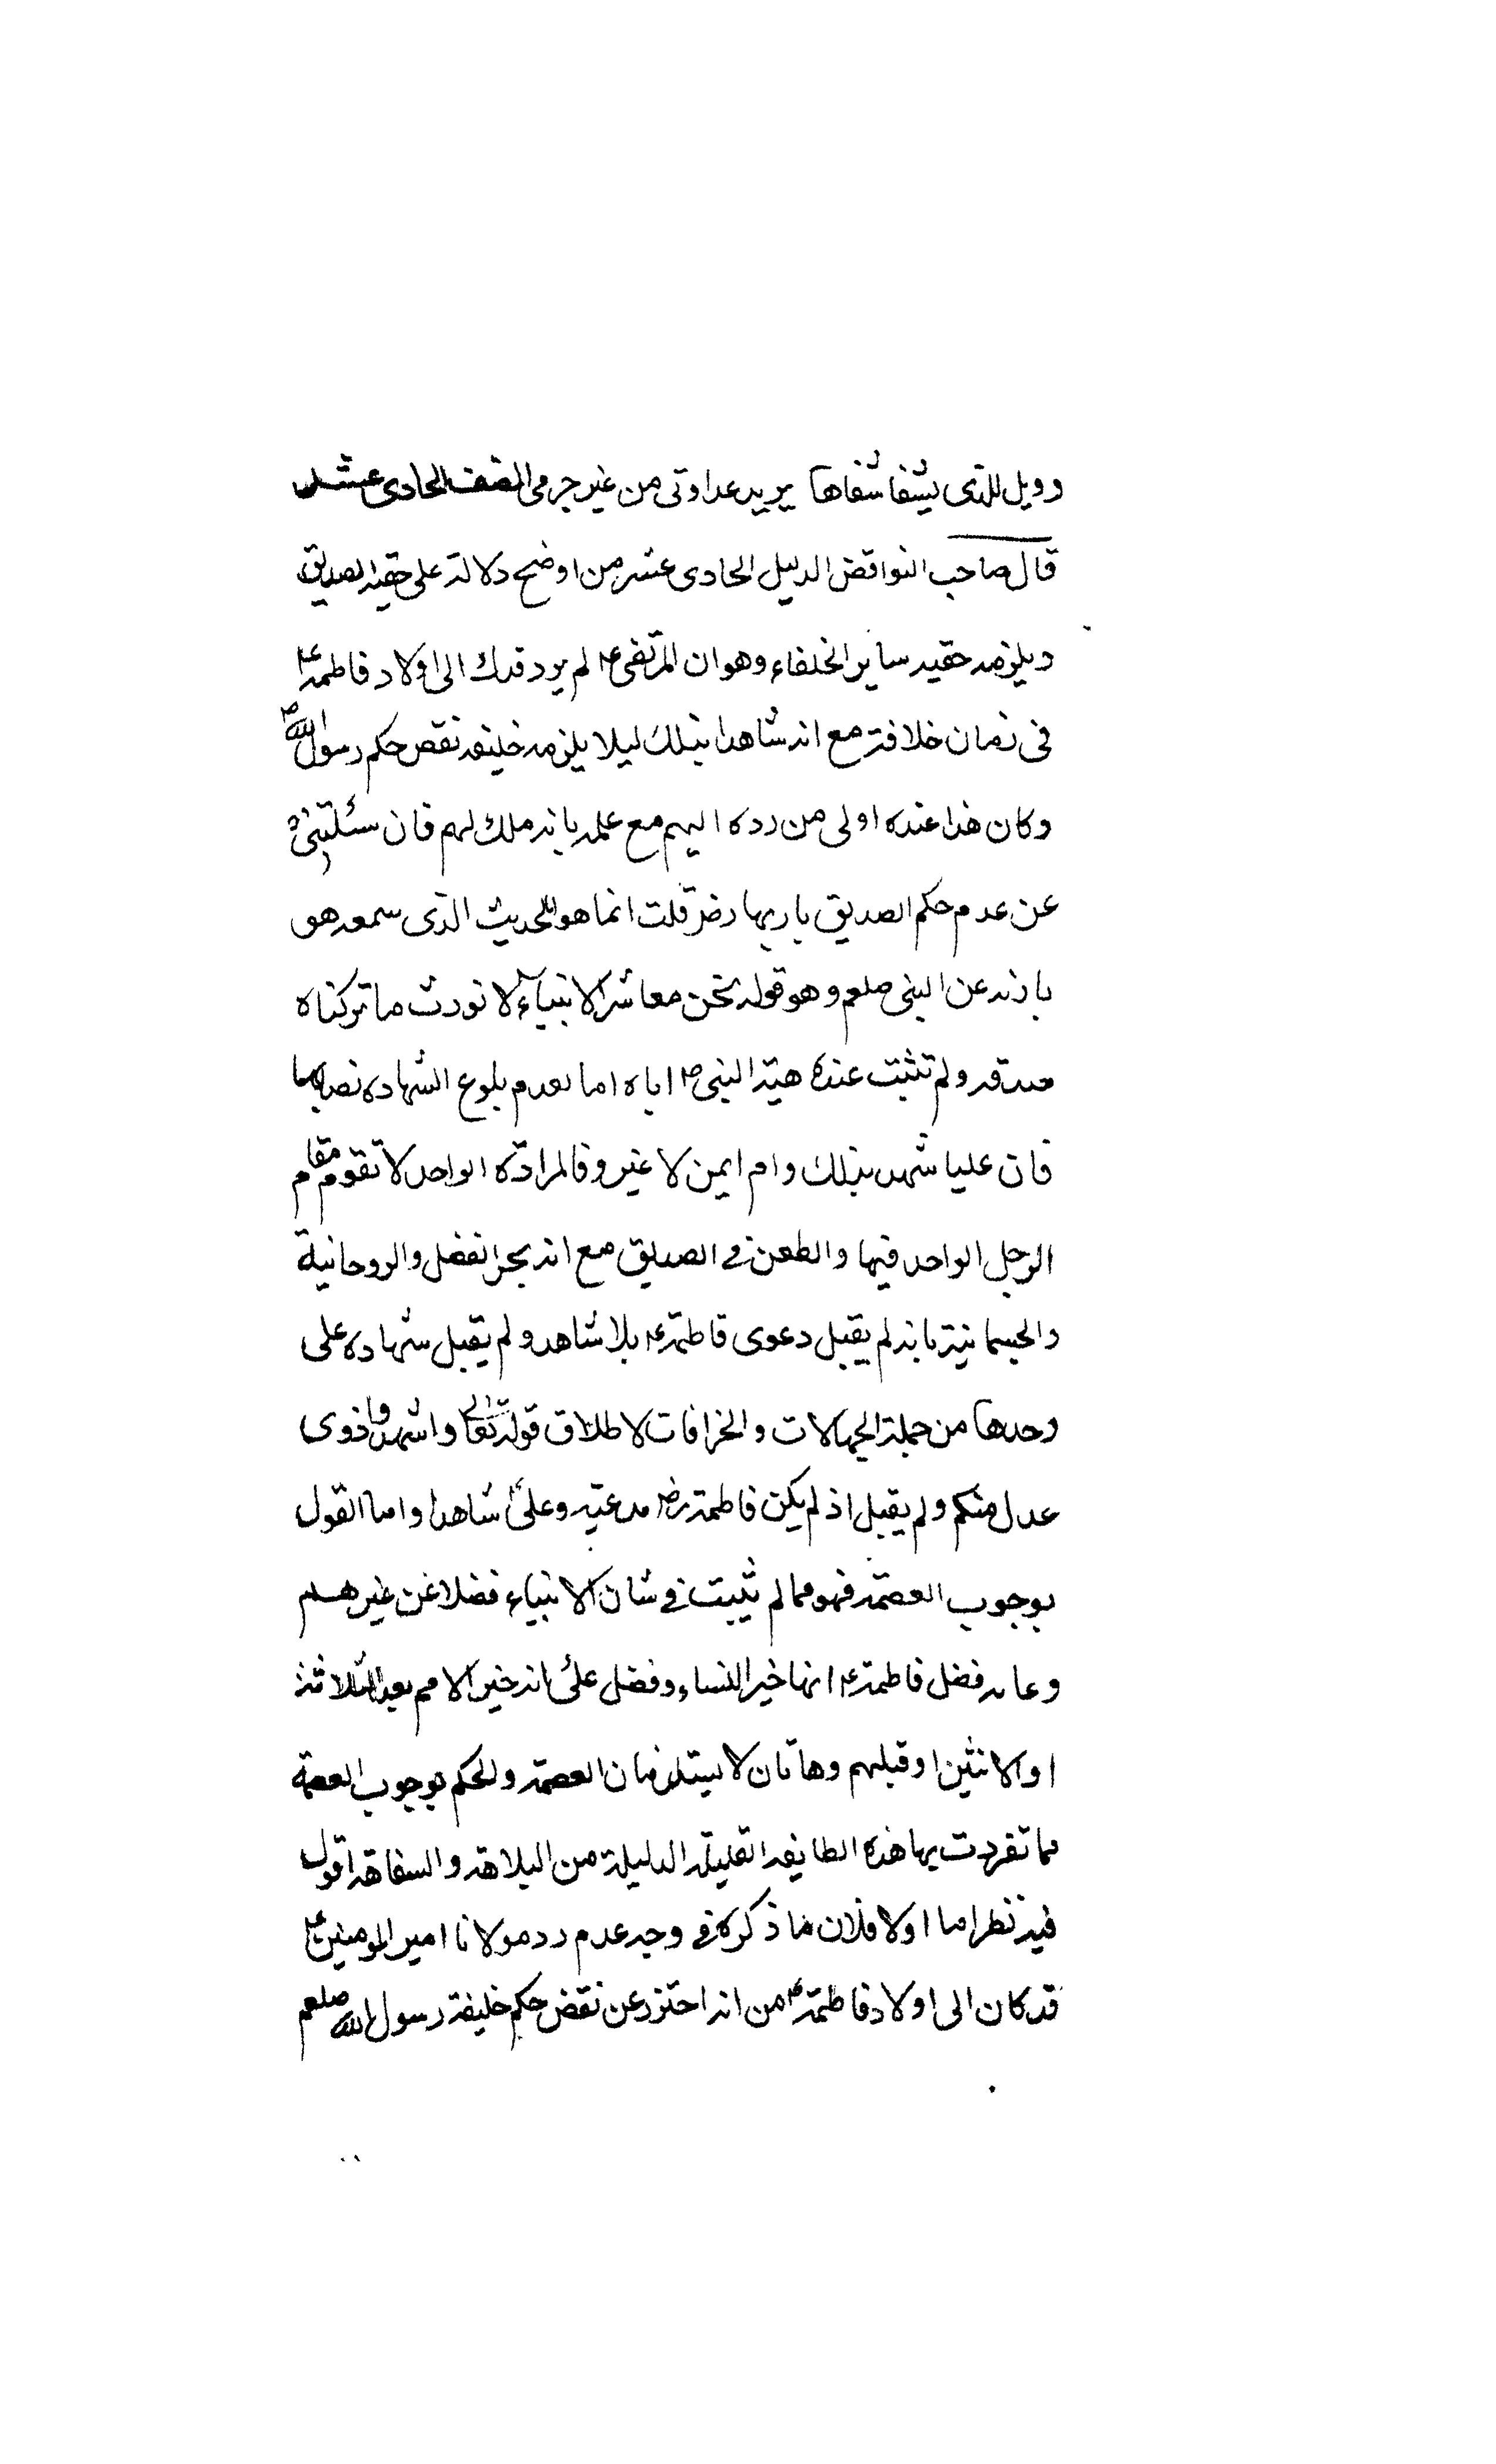 وويل للذى يشفا شفاها يريد عداوتى من غير جرمى الصف الحادى عشر
قال صاحب النواقض الدليل الحادى عشر من اوضح دلالة على حقيه الصديق
ويلزمه حقيه ساير الخلفاء وهو ان المرتضى ع لم يرد فدك الى اولاد فاطمه ع
فى زمان خلافته مع انه شاهدا بذلك ليلا يلزمه خليفه نقص حكم رسول الله ص
وكان هذا عنده اولى من رده اليهم مع علمه بانه ملك لهم فان سئلتنى
عن عدم حكم الصديق بارثها رضه قلت انما هو للحديث الذى سمعه هو
باذنه عن النبى صلعم وهو قوله نحن معاشر الانبياء لا نورث ما تركناه
صدقه ولم تثبت عنده هبة النبى ص اياه اما لعدم بلوع الشهاده نصابها
فان عليا شهد بذلك وام ايمن لا غير وفالمراة الواحد لا تقوم مقام
الرجل الواحد فيها والطعن فى الصديق مع انه بحر الفضل والروحانية
والجسمانية بانه لم يقبل دعوى فاطمة ع بلا شاهد ولم يقبل شهاده على
وحدها من جملة الجهالات والخرافات لاطلاق قوله تعالى واشهدوا ذوى
عدل منكم ولم يقبل اذ لم يكن فاطمة رض مدعيه وعلى شاهدا واما القول
بوجوب العصمه فهو مما لم تثبت فى شان الانبياء فضلا عن غيرهم
وغايه فضل فاطمة ع انها خير النساء وفضل على انه خير الامم بعد الثلاثه
او الاثنين او قبلهم وهاتان لا يستلزمان العصمه والحكم بوجوب العصمة
مما تفردت بها هذه الطايفه القليله الدليلة من البلاهه والسفاهه اقول
فيه نظر اما اولا فلان ما ذكره فى وجه عدم رد مولانا امير المومنين ع
فدكان الى اولاد فاطمة ع من انه احترز عن نقض حكم خليفة رسول الله صلعم